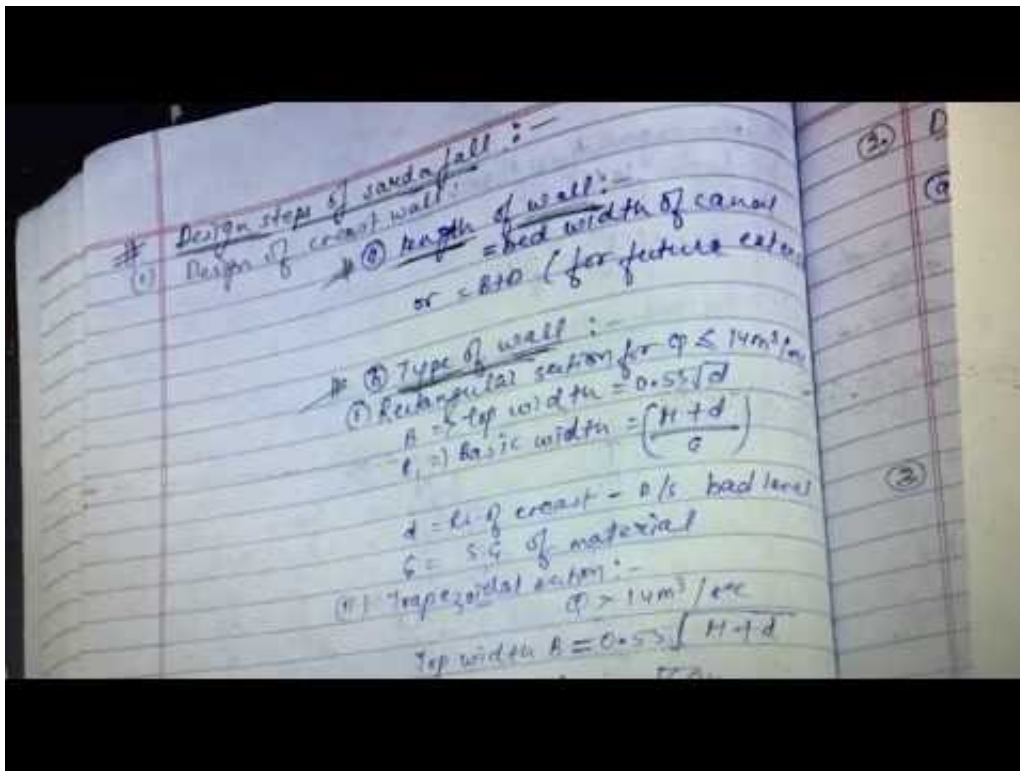 # Design steps of sarda fall :-
(1) Design of creast wall :
(a) length of wall :-
= bed width of canal
or = B+D (for future exten
(b) Type of wall :-
(i) Rectangular section for Q ≤ 14m³/sec
B => top width = 0.55√d
B₁ => Basic width = (H+d / G)
d = RL of creast - D/s bad level
G = S.G of material
(ii) Trapezoidal section :-
Q > 14m³/sec
Top width B = 0.55√H+d
(2.)
D
(a
(3)